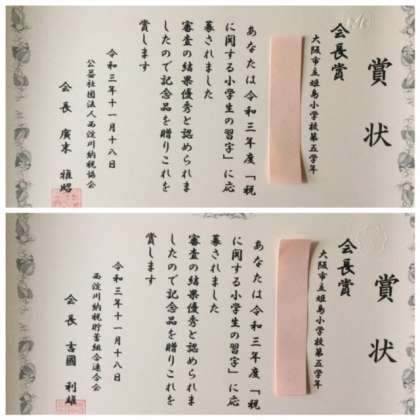 賞状
会長賞
大阪市立姫島小学校第五学年
あなたは令和三年度「税
に関する小学生の習字」に応
募されました
審査の結果優秀と認められま
したので記念品を贈りこれを
賞します
令和三年十一月十八日
公益社団法人西淀川納税協会
会長 廣末 雅昭
賞状
会長賞
大阪市立姫島小学校第五学年
あなたは令和三年度「税
に関する小学生の習字」に応
募されました
審査の結果優秀と認められま
したので記念品を贈りこれを
賞します
令和三年十一月十八日
西淀川納税貯蓄組合連合会
会長 吉國 利雄